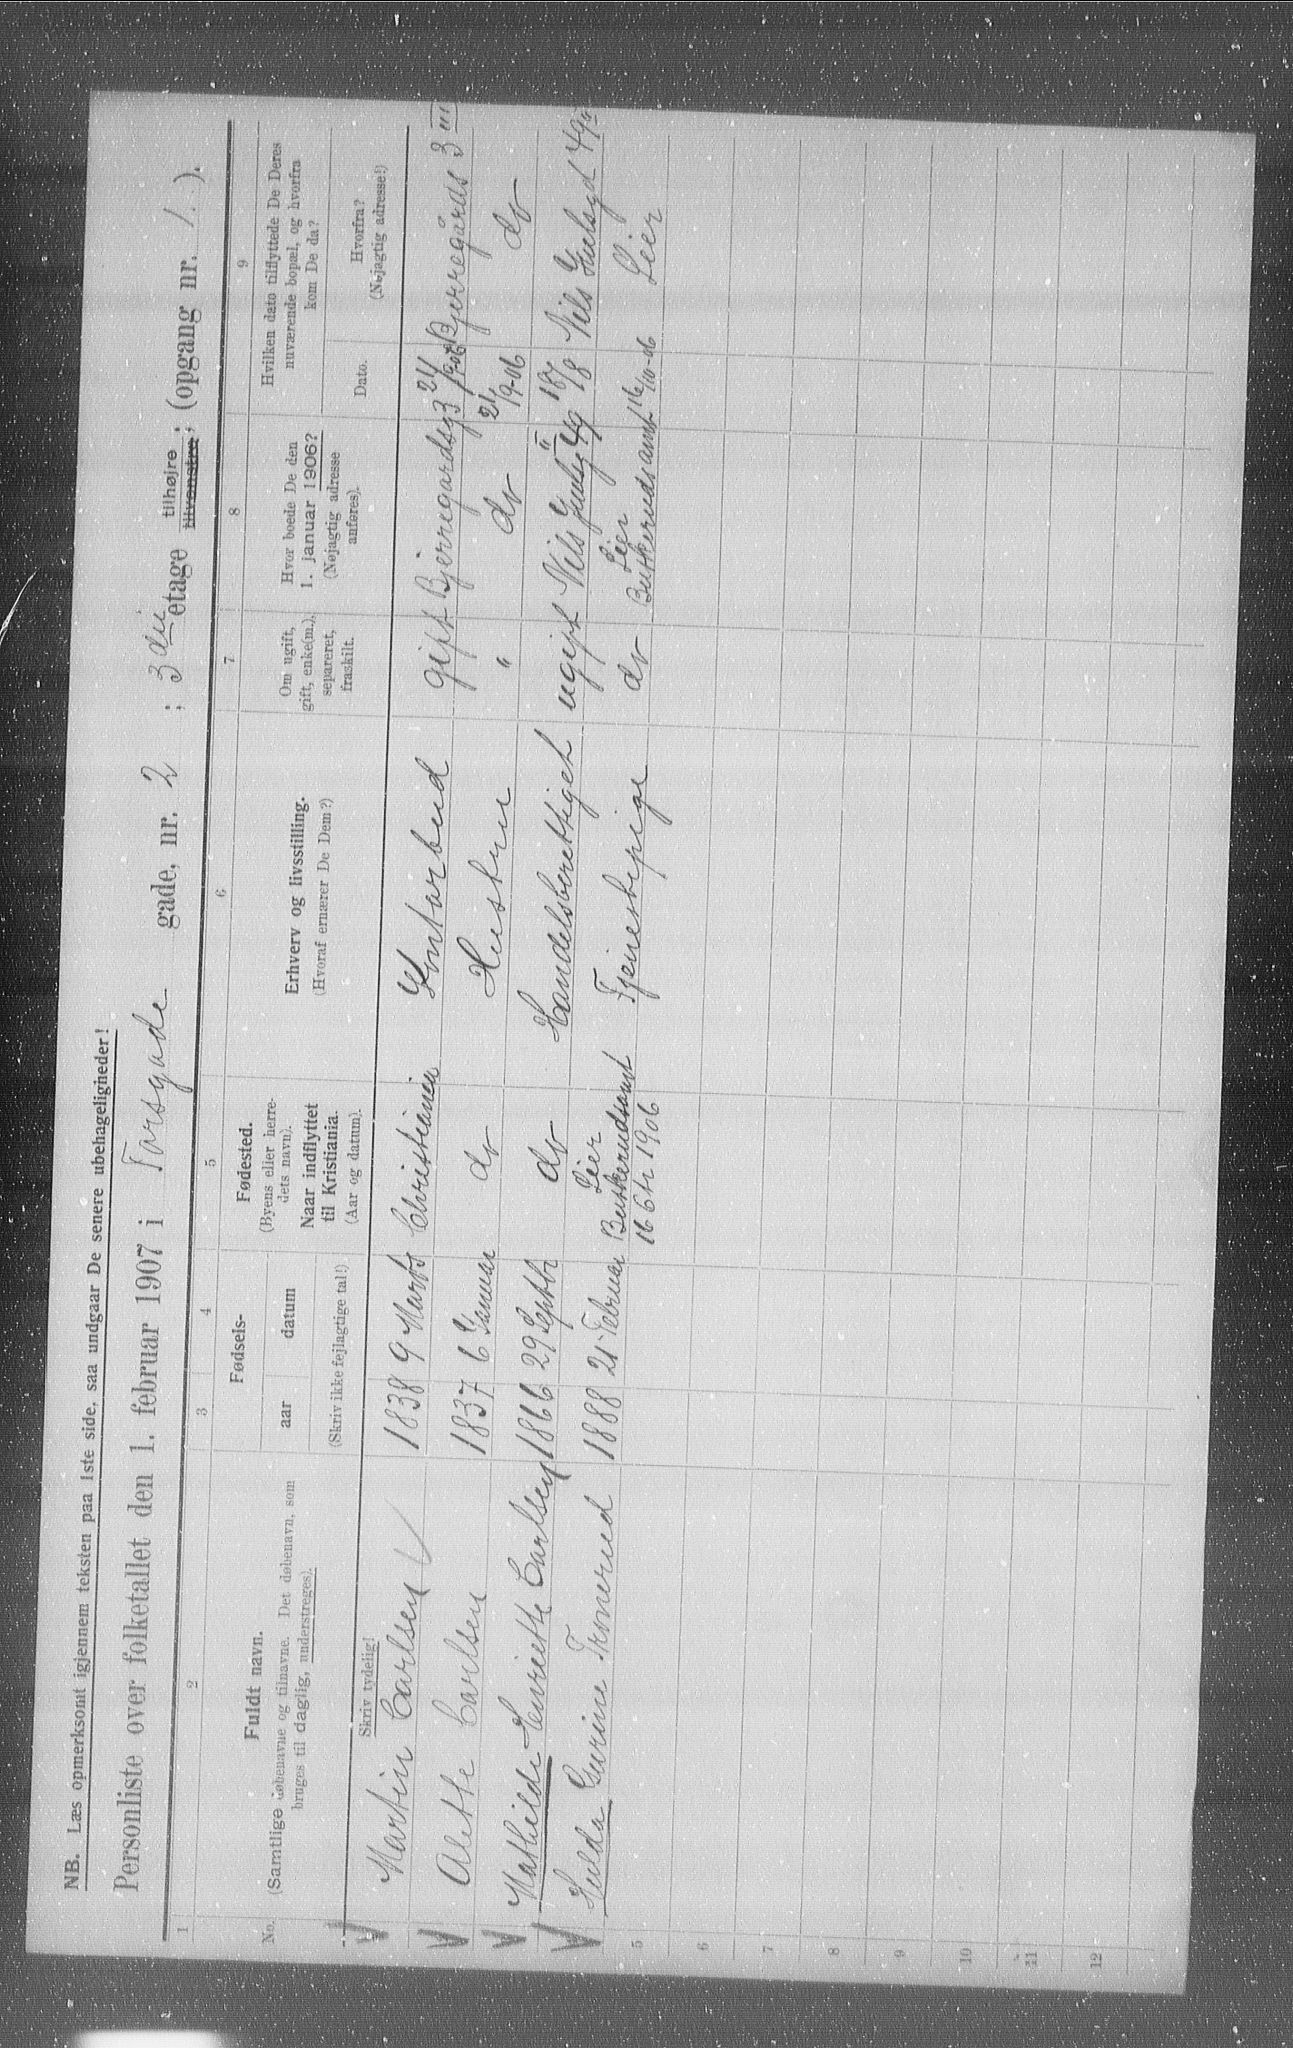 NB. Læs opmerksomt igjennem teksten paa 1ste side, saa undgaar De senere ubehageligheder!
Personliste over folketallet den 1. februar 1907 i Torsgade gade, nr. 2 ; 3die etage tilhøjre tilvenstre; (opgang nr. 1. ).
1 2 3 4 5 6 7 8 9
No. Fuldt navn.
(Samtlige døbenavne og tilnavne. Det døbenavn, som
bruges til daglig, understreges).
Skriv tydelig!
Fødsels-
aar datum
(Skriv ikke fejlagtige tal!)
Fødested.
(Byens eller herre-
dets navn).
Naar indflyttet
til Kristiania.
(Aar og datum).
Erhverv og livsstilling.
(Hvoraf ernærer De Dem?)
Om ugift,
gift, enke(m.),
separeret,
fraskilt.
Hvor boede De den
1. januar 1906?
(Nøjagtig adresse
anføres).
Hvilken dato tilflyttede De Deres
nuværende bopæl, og hvorfra
kom De da?
Dato. Hvorfra?
(Nøjagtig adresse!)
Martin Carlsen 1838 9 Marts Christiania Kontorbud gift Bjerregårdsg 3 21/9-06 Bjerregårds 3 III
Alette Carlsen 1837 6 Januar do Hustru " do 21/9-06 do
Mathilde Henriette Carlsen 1866 29 Septbr do Handelsberettiget ugift Nils Juelsg 49 II 18/8 Nils Juelsgd 49
Hulda Gurine Tronerud 1888 21 Februar Lier Buskerudsamt 16 Otr 1906 Tjenestepige do Lier Buskerudsamt 16/10-06 Lier
5
6
7
8
9
10
11
12